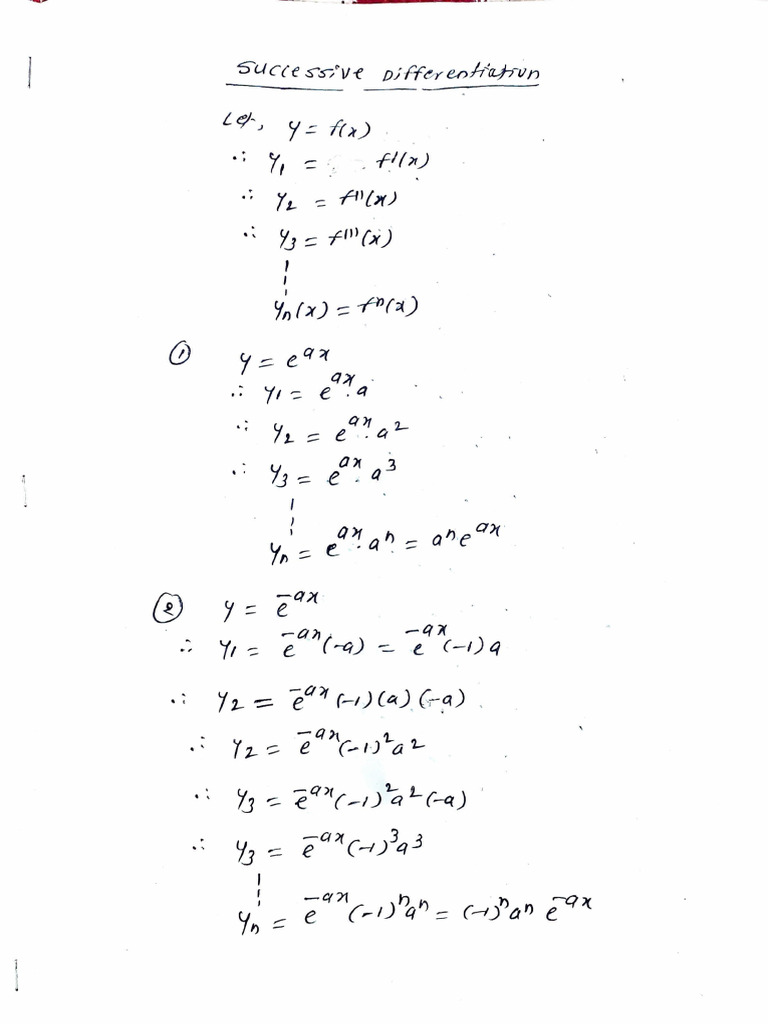 Successive Differentiation
Let, y = f(x)
∴ y₁ = f'(x)
∴ y₂ = f''(x)
∴ y₃ = f'''(x)
yₙ(x) = fⁿ(x)
① y = e^{ax}
∴ y₁ = e^{ax}.a
∴ y₂ = e^{ax}.a²
∴ y₃ = e^{ax}.a³
yₙ = e^{ax}.aⁿ = aⁿe^{ax}
② y = e^{-ax}
∴ y₁ = e^{-ax}(-a) = e^{-ax}(-1)a
∴ y₂ = e^{-ax}(-1)(a)(-a)
∴ y₂ = e^{-ax}(-1)²a²
∴ y₃ = e^{-ax}(-1)²a²(-a)
∴ y₃ = e^{-ax}(-1)³a³
yₙ = e^{-ax}(-1)ⁿaⁿ = (-1)ⁿaⁿ e^{-ax}